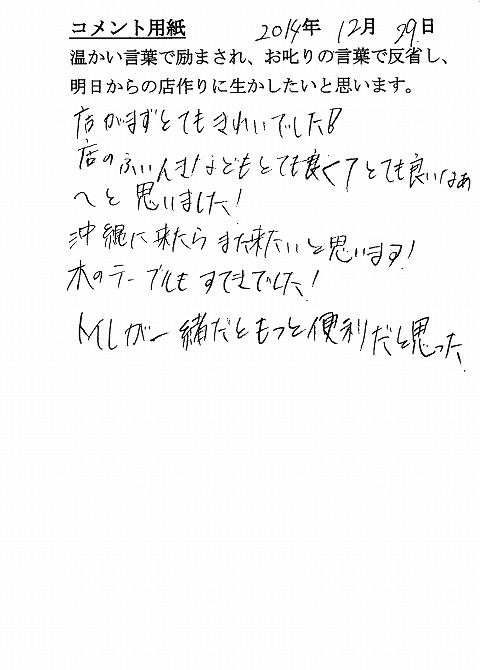 コメント用紙 2014年 12月 29日
温かい言葉で励まされ、お叱りの言葉で反省し、
明日からの店作りに生かしたいと思います。
店がまずとてもきれいでした!
店のふいんきなどもとても良くてとても良いなあ
〜と思いました!
沖縄に来たらまた来たいと思います!
木のテーブルもすてきでした!
トイレが一緒だともっと便利だと思った